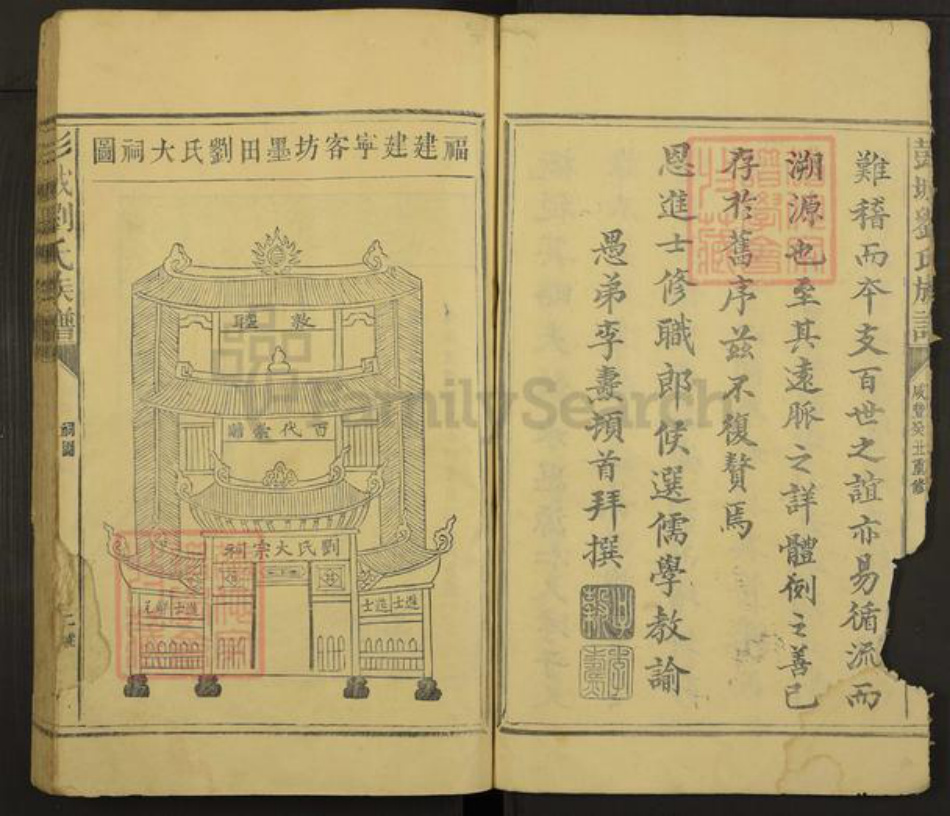 彭城劉氏族譜
咸豐癸丑重修
難稽而本支百世之誼亦易循流而
溯源也至其遠脈之詳體例之善已
存於舊序茲不復贅焉
恩進士修職郎候選儒學教諭
愚弟李壽頓首拜撰
福建建寧客坊墨田劉氏大祠圖
敦睦
百代蒸嘗
劉氏大宗祠
進士
進士進士
彭城劉氏族譜
祠圖
FamilySearch